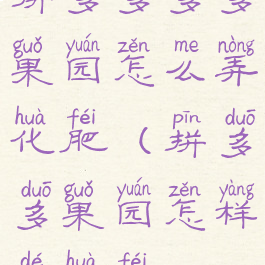 拼多多多多
guǒ yuán zěn me nòng
果园怎么弄
huà féi pīn duō
化肥(拼多
duō guǒ yuán zěn yàng
多果园怎样
dé huà féi